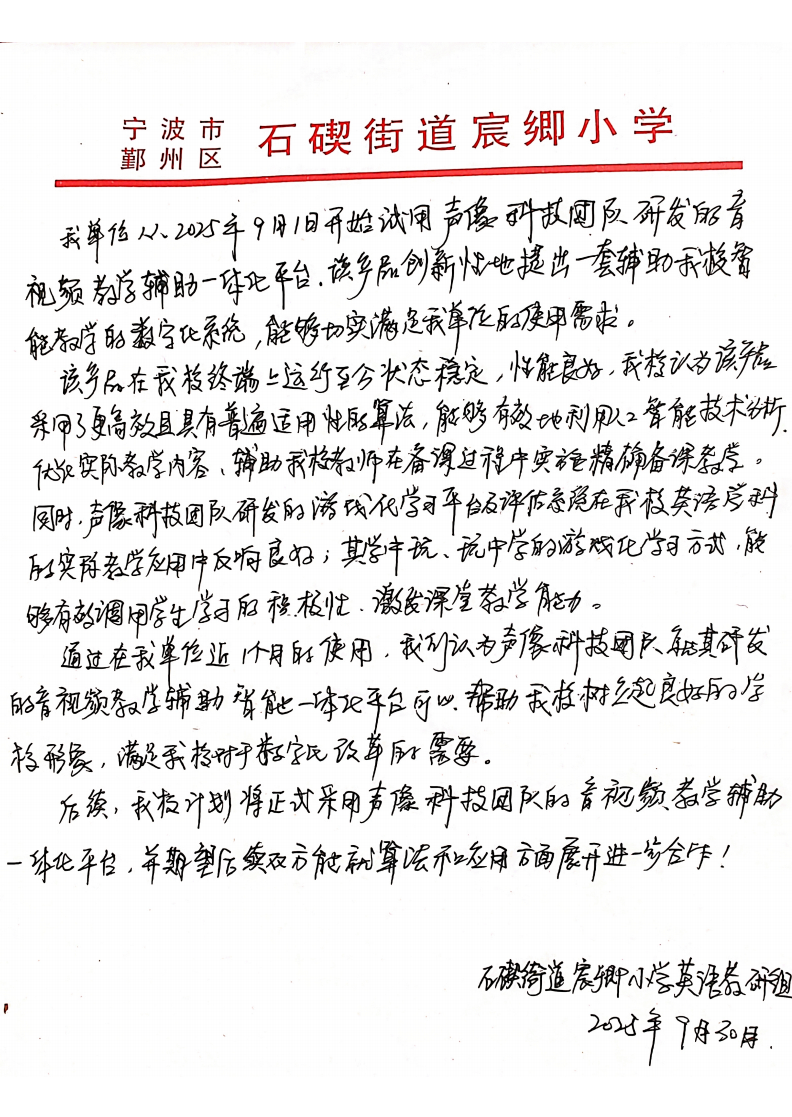 宁波市
鄞州区
石碶街道宸卿小学
我单位从2025年9月1日开始试用声像科技团队研发的音
视频教学辅助一体化平台。该产品创新性地提出一套辅助我校智
能教学的数字化系统,能够切实满足我单位的使用需求。
该产品在我校终端上运行至今状态稳定,性能良好,我校认为该产品
采用了更高效且具有普遍适用性的算法,能够有效地利用人工智能技术分析、
优化实际教学内容、辅助我校教师在备课过程中实施精确备课教学。
同时,声像科技团队研发的游戏化学习平台及评估系统在我校英语学科
的实际教学应用中反响良好;其学中玩、玩中学的游戏化学习方式,能
够有效调用学生学习的积极性、激发课堂教学能力。
通过在我单位近1个月的使用,我们认为声像科技团队及其研发
的音视频教学辅助智能一体化平台可以帮助我校树立起良好的学
校形象,满足我校对于数字化改革的需要。
后续,我校计划将正式采用声像科技团队的音视频教学辅助
一体化平台,并期望后续双方能就算法和应用方面展开进一步合作!
石碶街道宸卿小学英语教研组
2025年9月30日.